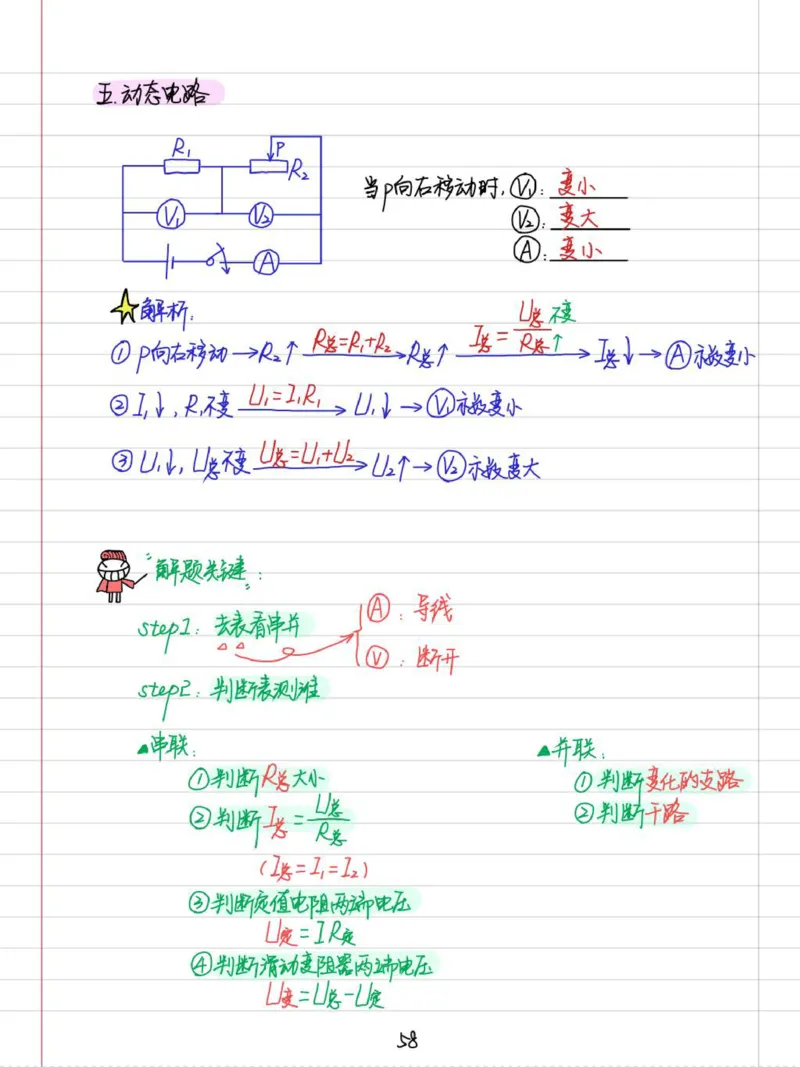 五.动态电路
R₁ P R₂
V₁ V₂
A
当P向右移动时, V₁: 变小
V₂: 变大
A: 变小
解析:
① P向右移动→R₂↑ R总=R₁+R₂→R总↑ I总=U总不变/R总↑→I总↓→A示数变小
② I₁↓, R₁不变 U₁=I₁R₁→U₁↓→V₁示数变小
③ U₁↓, U总不变 U总=U₁+U₂→U₂↑→V₂示数变大
"解题关键":
step1: 去表看串并
A: 导线
V: 断开
step2: 判断表测谁
▲串联:
①判断R总大小
②判断I总=U总/R总
(I总=I₁=I₂)
③判断定值电阻两端电压
U定=IR定
④判断滑动变阻器两端电压
U变=U总-U定
▲并联:
①判断变化的支路
②判断干路
58